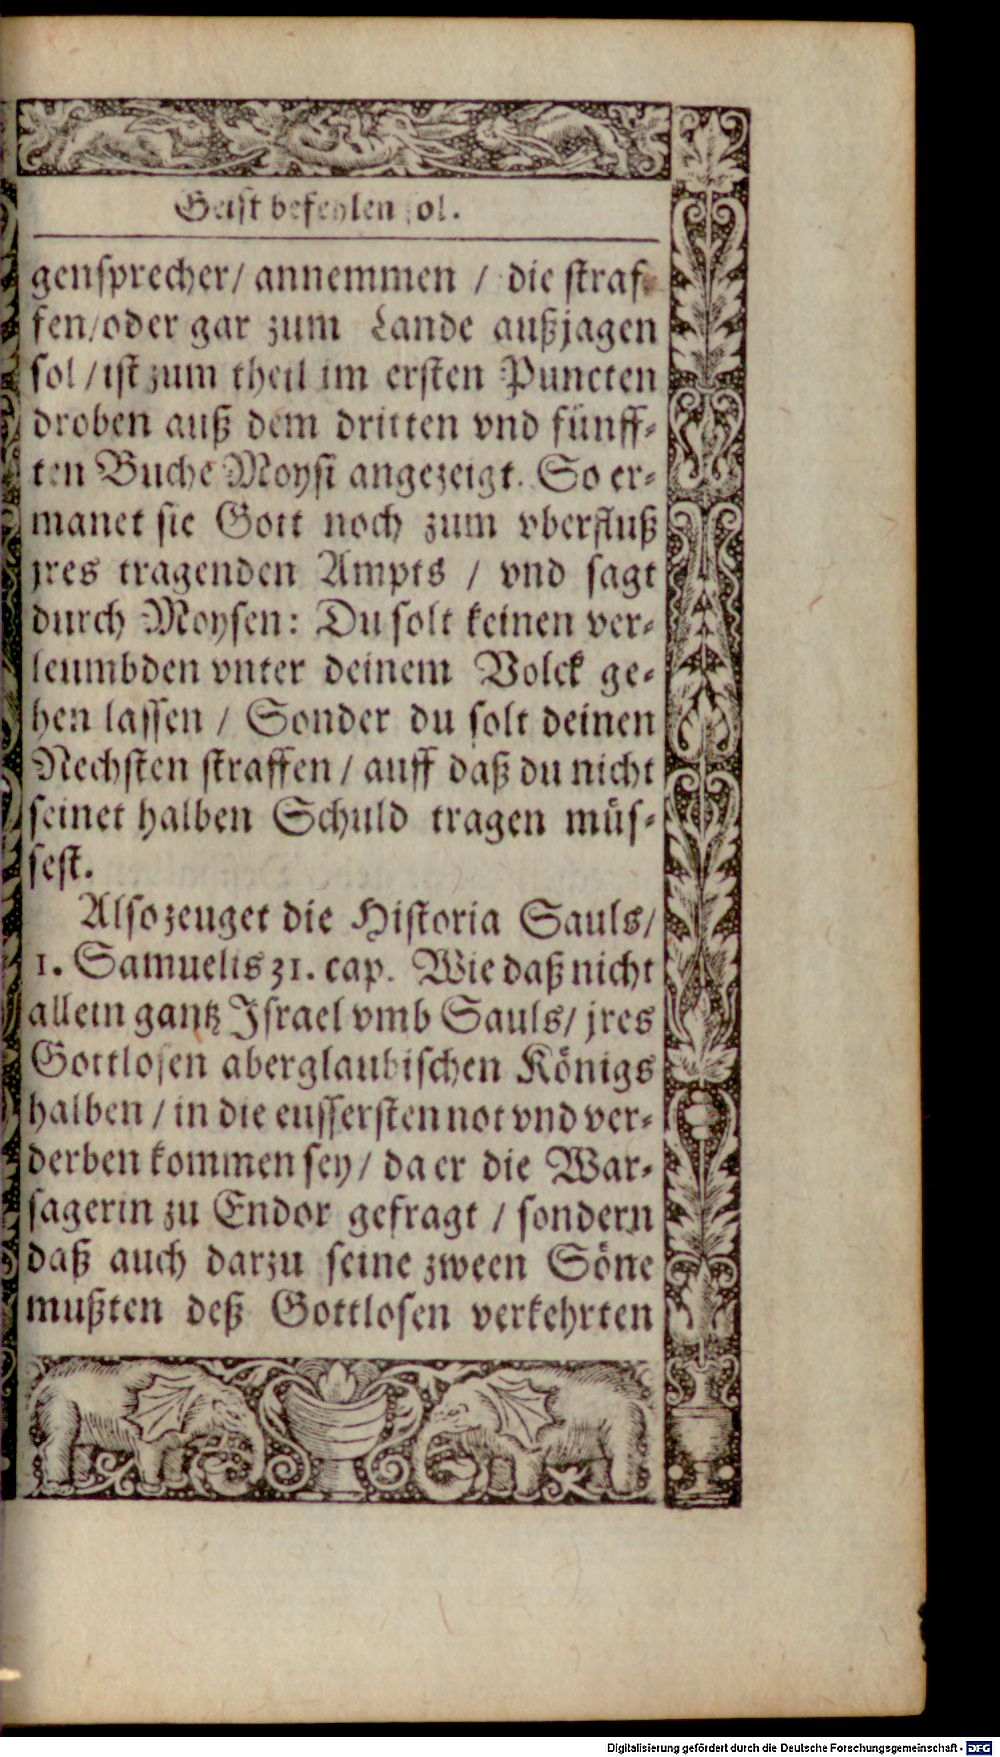 Geist befehlen sol.
gensprecher/ annemmen / die straf-
fen/oder gar zum Lande außjagen
sol /ist zum theil im ersten Puncten
droben auß dem dritten vnd fünff-
ten Buche Moysi angezeigt. So er-
manet sie Gott noch zum vberfluß
jres tragenden Ampts / vnd sagt
durch Moysen: Du solt keinen ver-
leumbden vnter deinem Volck ge-
hen lassen / Sonder du solt deinen
Nechsten straffen / auff daß du nicht
seinet halben Schuld tragen müs-
sest.
Also zeuget die Historia Sauls/
1. Samuelis 31. cap. Wie daß nicht
allein gantz Israel vmb Sauls/ jres
Gottlosen aberglaubischen Königs
halben / in die eussersten not vnd ver-
derben kommen sey/ da er die War-
sagerin zu Endor gefragt / sondern
daß auch darzu seine zween Söne
mußten deß Gottlosen verkehrten
Digitalisierung gefördert durch die Deutsche Forschungsgemeinschaft - DFG